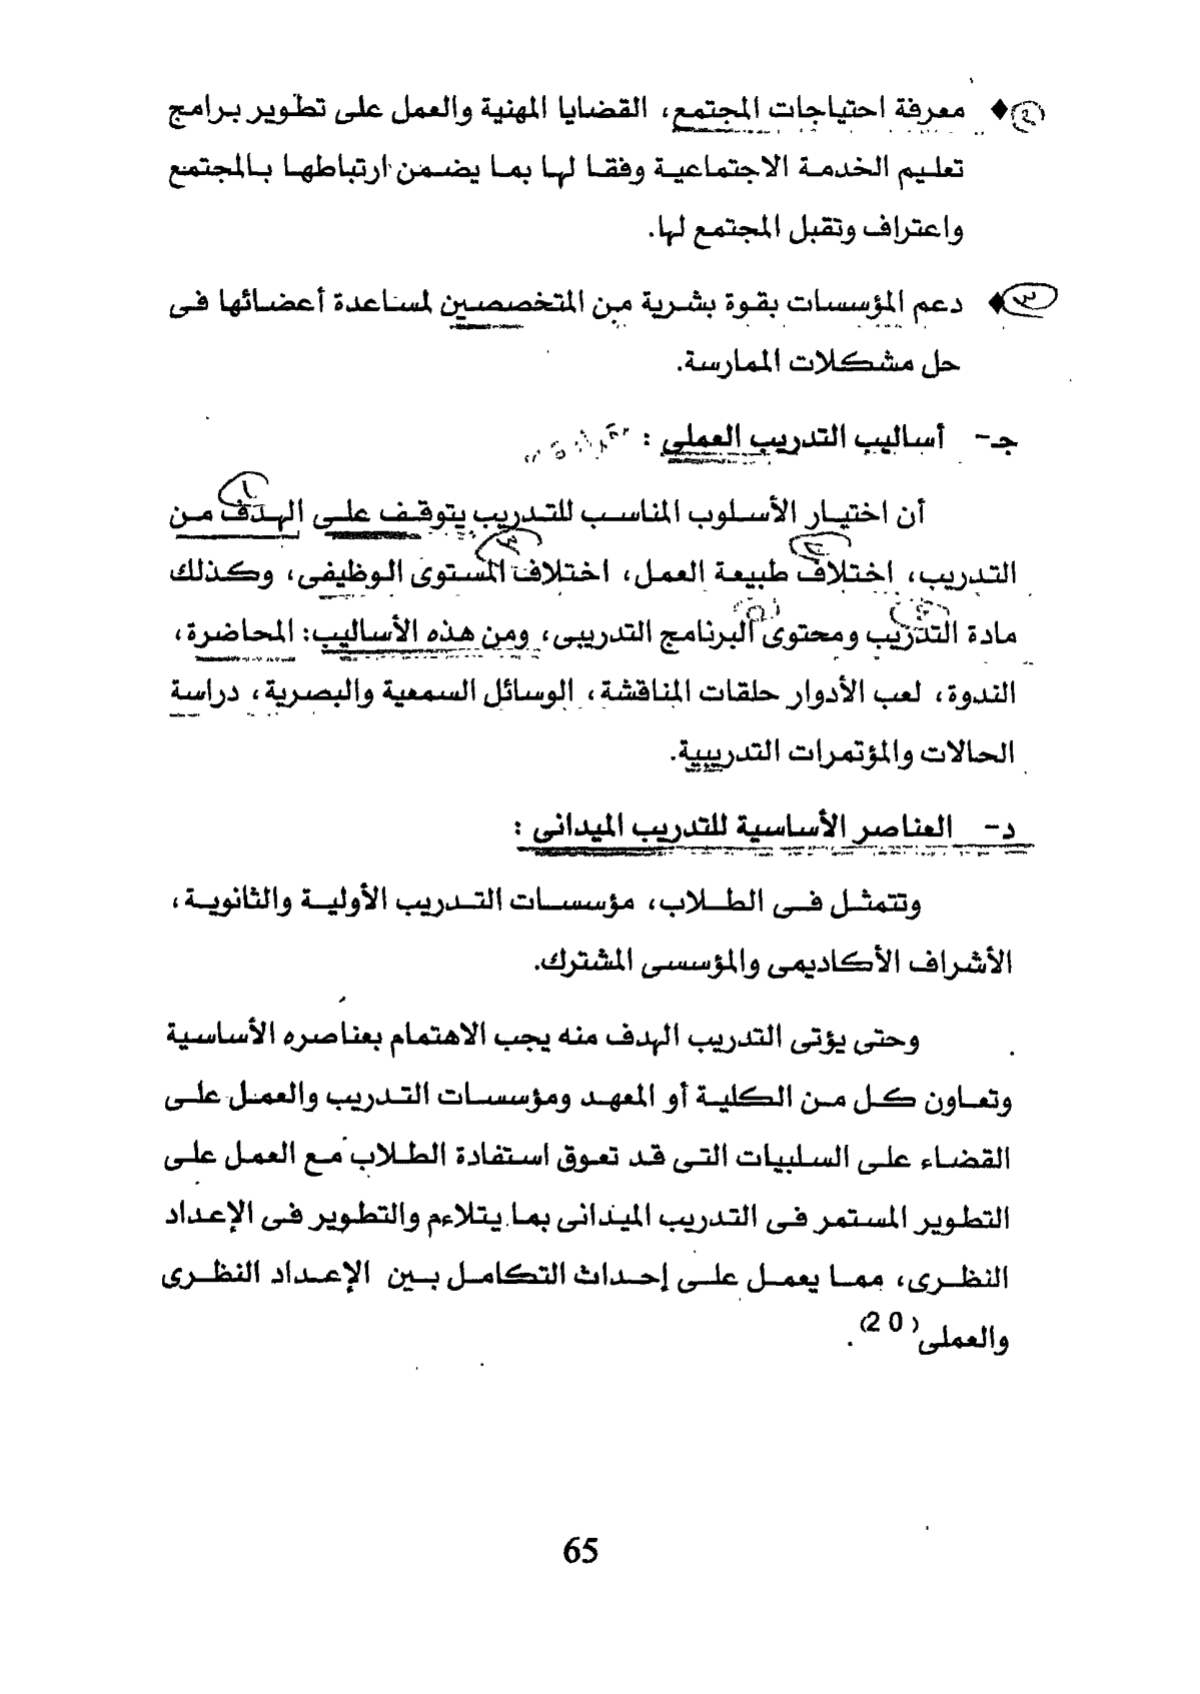 (٢) ♦ معرفة احتياجات المجتمع، القضايا المهنية والعمل على تطوير برامج
تعليم الخدمة الاجتماعية وفقا لها بما يضمن ارتباطها بالمجتمع
واعتراف وتقبل المجتمع لها.
(٣) ♦ دعم المؤسسات بقوة بشرية من المتخصصين لمساعدة أعضائها فى
حل مشكلات الممارسة.
جـ- أساليب التدريب العملى :
١
أن اختيار الأسلوب المناسب للتدريب يتوقف على الهدف من
٢ ٣
التدريب، اختلاف طبيعة العمل، اختلاف المستوى الوظيفى، وكذلك
٤ ٥
مادة التدريب ومحتوى البرنامج التدريبى، ومن هذه الأساليب: المحاضرة،
الندوة، لعب الأدوار حلقات المناقشة، الوسائل السمعية والبصرية، دراسة
الحالات والمؤتمرات التدريبية.
د- العناصر الأساسية للتدريب الميدانى :
وتتمثل فى الطلاب، مؤسسات التدريب الأولية والثانوية،
الأشراف الأكاديمى والمؤسسى المشترك.
وحتى يؤتى التدريب الهدف منه يجب الاهتمام بعناصره الأساسية
وتعاون كل من الكلية أو المعهد ومؤسسات التدريب والعمل على
القضاء على السلبيات التى قد تعوق استفادة الطلاب مع العمل على
التطوير المستمر فى التدريب الميدانى بما يتلاءم والتطوير فى الإعداد
النظرى، مما يعمل على إحداث التكامل بين الإعداد النظرى
والعملى(20).
65